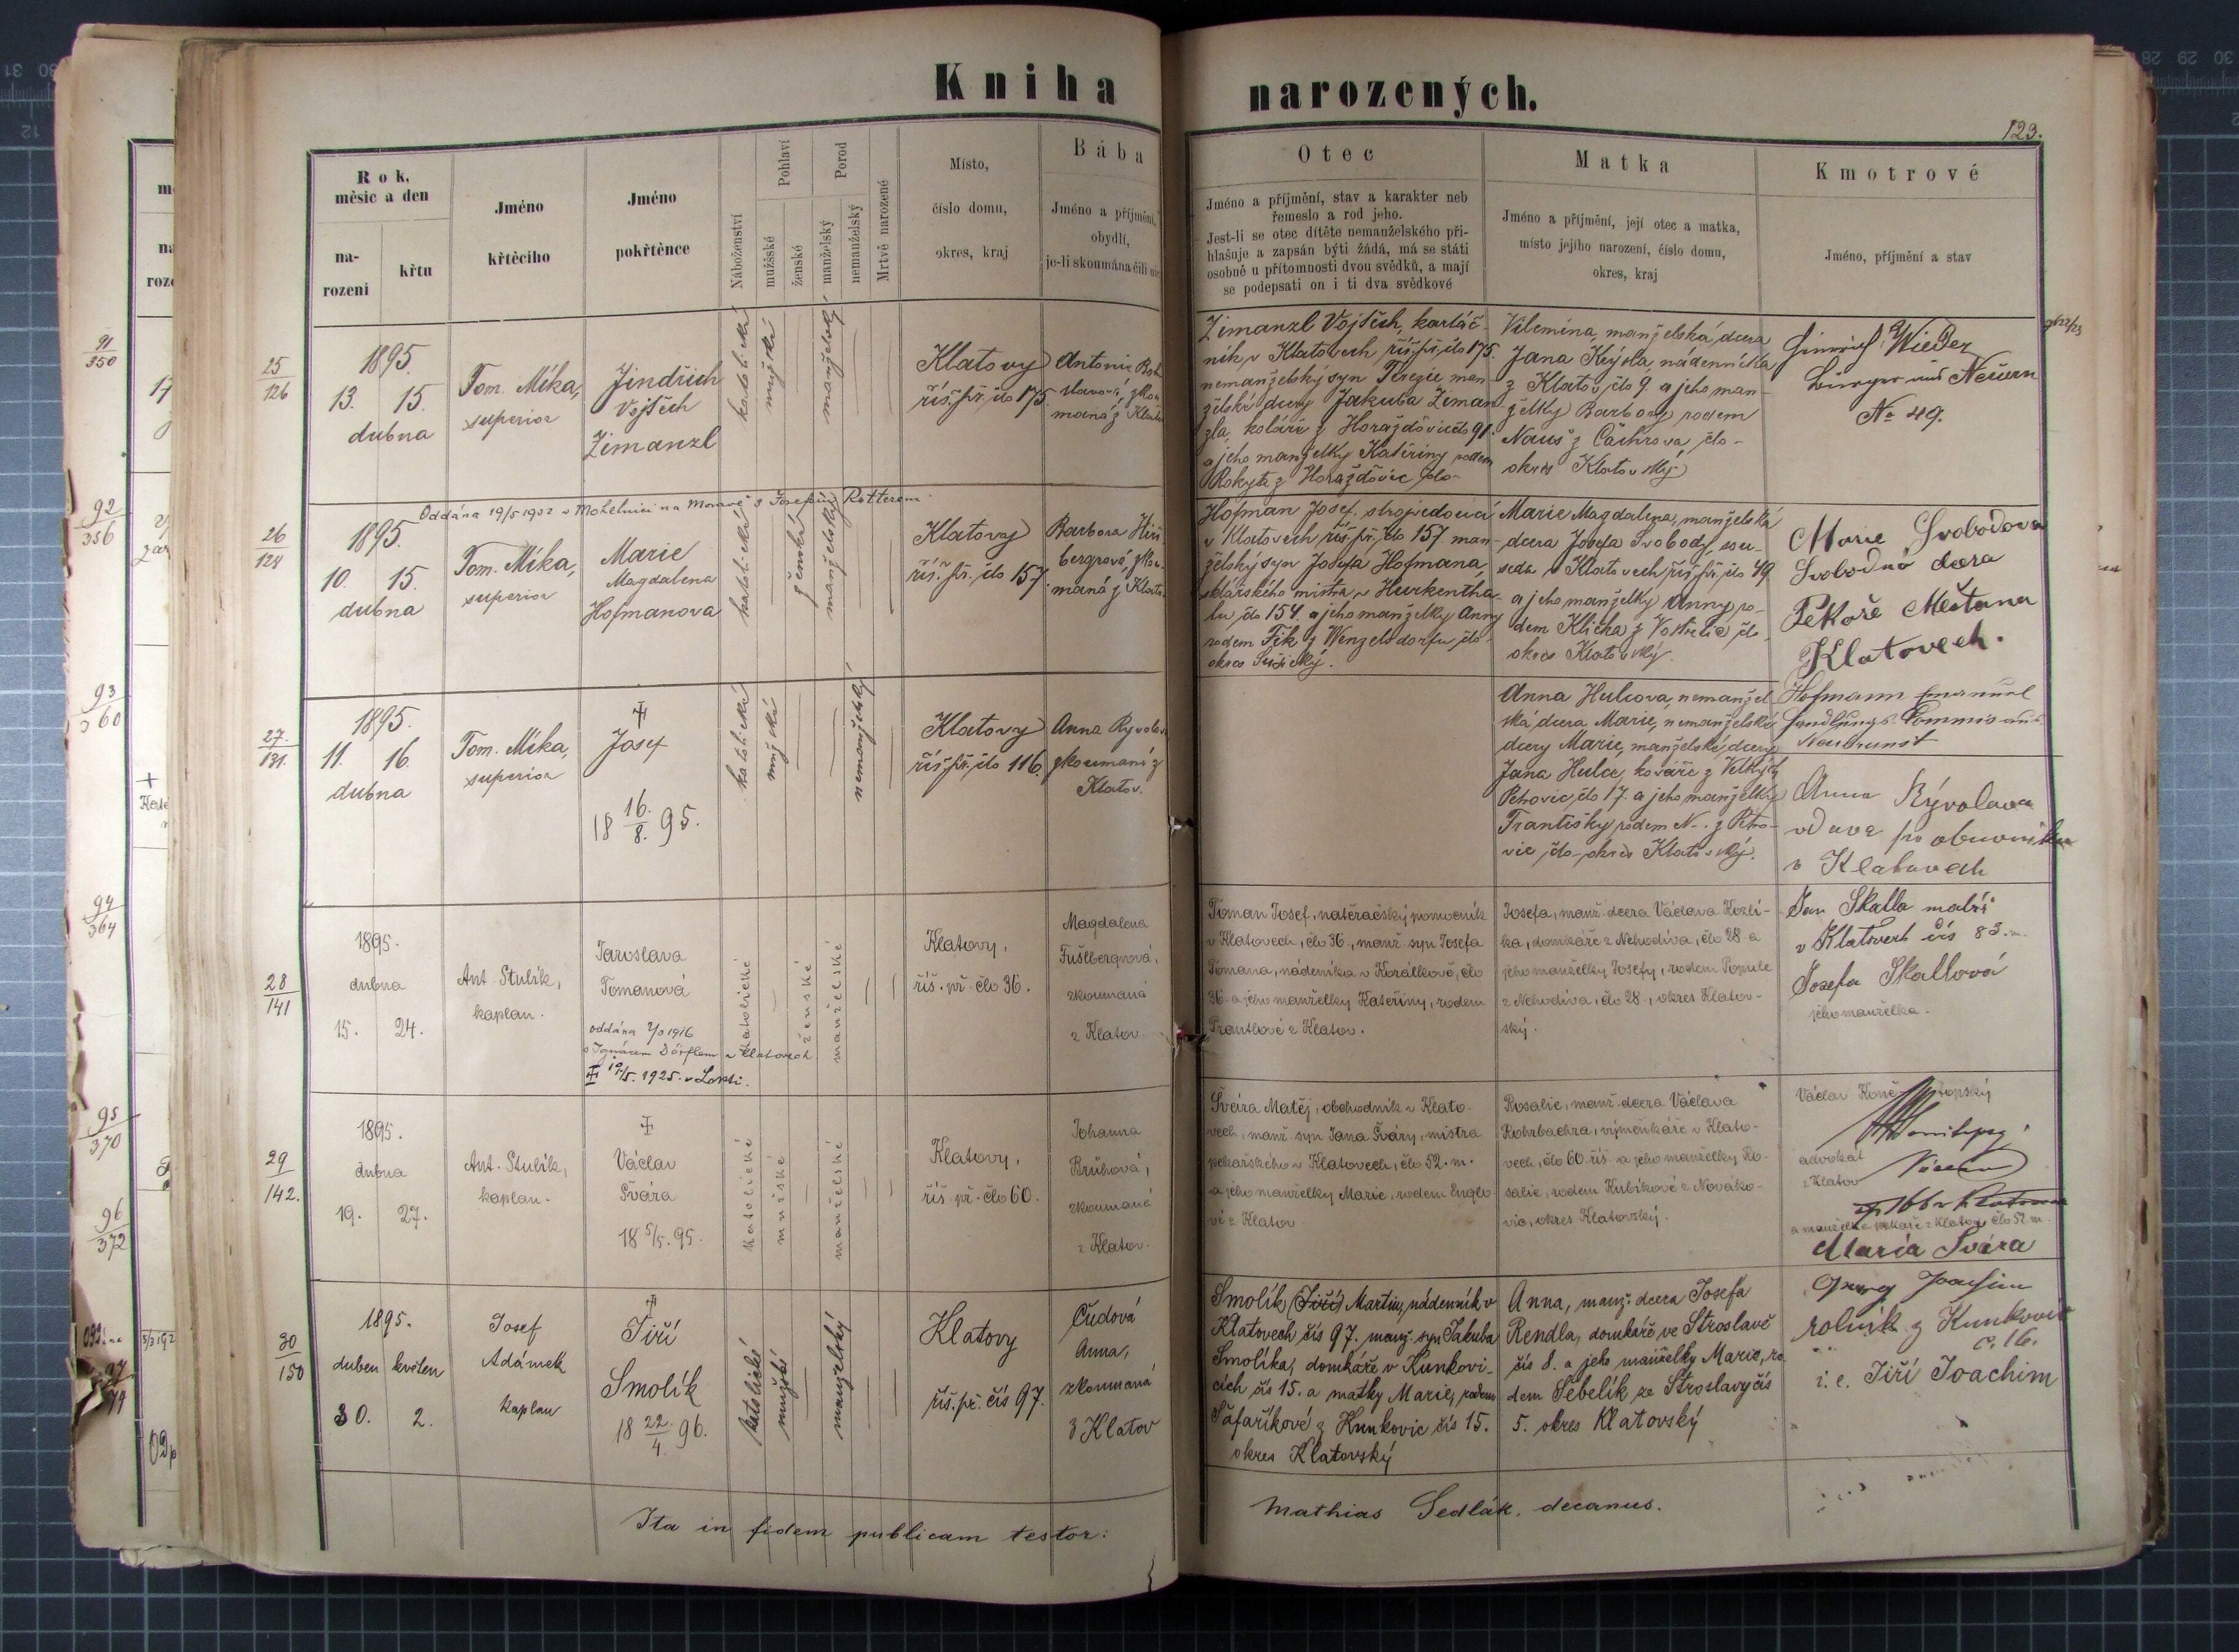 Kniha narozených.
123.
Rok, měsíc a den
na-
rozeni
křtu
Jméno
křtěcího
Jméno
pokřtěnce
Náboženství
Pohlaví
mužšské
ženské
Porod
manželský
nemanželský
Mrtvě narozené
Místo,
číslo domu,
okres, kraj
Bába
Jméno a příjmení,
obydlí,
je-li skoumána čili
Otec
Jméno a příjmení, stav a karakter neb
řemeslo a rod jeho.
Jest-li se otec dítěte nemanželského při-
hlašuje a zapsán býti žádá, má se státi
osobně u přítomnosti dvou svědků, a mají
se podepsati on i ti dva svědkové
Matka
Jméno a příjmení, její otec a matka,
místo jejího narození, číslo domu,
okres, kraj
Kmotrové
Jméno, příjmení a stav
91
350
92
356
93
360
94
364
95
370
96
372
25
126
1895.
13. 15.
dubna
Tom. Míka,
superior
Jindřich
Vojtěch
Zimanzl
katolické
mužské
manželský
Klatovy
říš. př. člo 175.
Antonie
zkou-
maná z
Zimanzl Vojtěch, kartáč-
ník v Klatovech říš. př. člo 175.
nemanželský syn Terezie man-
želské dcery Jakuba Ziman-
zla, koláře z Horažďovic člo 91.
a jeho manželky Kateřiny rodem
Rokyta z Horažďovic člo-
Vilemína, manželská dcera
Jana Krýsla, nádenníka
z Klatov, člo 9. a jeho man-
želky Barbory rodem
Nauš z Čachrova člo-
okres Klatovský
Heinrich Wieder
Bürger aus Neuern
No 49.
Oddána 19/5 1902 v Mohelnici na Moravě s Josefem Rotterem.
26
128
1895.
10. 15.
dubna
Tom. Míka,
superior
Marie
Magdalena
Hofmanova
katolické
ženské
manželský
Klatovy
říš. př. člo 157.
Barbora Hirš-
bergrová, zkou-
maná z Klatov
Hofman Josef, strojvedoucí
v Klatovech říš. př. člo 157. man-
želský syn Josefa Hofmana,
sklářského mistra v Hurkentha-
lu, člo 154. a jeho manželky Anny
rodem Fik z Wenzelsdorfu, člo-
okres Sušický.
Marie Magdalena, manželská
dcera Josefa Svobody, sou-
seda v Klatovech říš. př. člo 49
a jeho manželky Anny ro-
dem Klička z člo-
okres Klatovský.
Marie Svobodova
Svobodná dcera
Pekaře Měštana
Klatovech.
27.
131.
1895.
11. 16.
dubna
Tom. Míka,
superior
Josef
18 16./8. 95.
katolické
mužské
nemanželský
Klatovy
říš. př. člo 116.
Anna Ryvolová
zkoumaná z
Klatov.
Anna Hulcova, nemanžel-
ská dcera Marie, nemanželské
dcery Marie, manželské dcery
Jana Hulce, kováře z Velkých
Petrovic, člo 17. a jeho manželky
Františky rodem N-. z Petro-
vic, člo- okres Klatovský.
Hofmann Emanuel
Handlungs Commis aus
Neubrunst
Anna Rývolava
vdova po obuvníku
v Klatovech
28
141
1895.
dubna
15. 24.
Ant. Stulík,
kaplan.
Jaroslava
Tomanová
oddána 1916
s Ignácem Dörflem v Klatovech
1925. v Lokti.
katolické
ženské
manželské
Klatovy,
říš. př. člo 36.
Magdalena
Fušlbergrová,
zkoumaná
z Klatov.
Toman Josef, natěračský pomocník
v Klatovech, člo 36., manž. syn Josefa
Tomana, nádeníka v Korálkově, člo
36. a jeho manželky Kateřiny, rodem
Prantlové z Klatov.
Josefa, manž. dcera Václava Kozlí-
ka, domkáře z Nehodiva, člo 28. a
jeho manželky Josefy, rodem Popule
z Nehodiva, člo 28., okres Klatov-
ský.
Jan Skalla malíř
v Klatovech čís 83.m.
Josefa Skallová
jeho manželka.
29
142.
1895.
dubna
19. 27.
Ant. Stulík,
kaplan.
Václav
Švára
18 5/5. 95.
katolické
mužské
manželské
Klatovy,
říš. př. člo 60.
Johanna
Brůhová,
zkoumaná
z Klatov.
Švára Matěj, obchodník v Klato-
vech, manž. syn Jana Šváry, mistra
pekařského v Klatovech, člo 52. m.
a jeho manželky Marie, rodem Englo-
vé z Klatov.
Rosalie, manž. dcera Václava
Rohrbachra, výměnkáře v Klato-
vech, člo 60. říš. a jeho manželky Ro-
salie, rodem Kubíkové z Novako-
vic, okres Klatovský.
Václav
advokát
z Klatov
a manželka pekaře z Klatov člo 52 m.
Maria Svára
30
150
1895.
duben květen
30. 2.
Josef
Adámek
kaplan
Jiří
Smolík
18 22./4. 96.
katolické
mužské
manželský
Klatovy
říš. př. čís 97.
Čudová
Anna,
zkoumaná
z Klatov
Smolík (Jiří) Martin, nádenník v
Klatovech čís 97. manž. syn Jakuba
Smolíka, domkáře v Kunkovi-
cích čís 15. a matky Marie, rodem
Šafaříkové z Kunkovic čís 15.
okres Klatovský
Anna, manž. dcera Josefa
Rendla, domkáře ve Stroslavě
čís 8. a jeho manželky Marie, ro-
dem Sebelík ze Stroslavy čís
5. okres Klatovský
Georg Joachim
rolník z Kunkovic
č. 16.
i. e. Jiří Joachim
Ita in fidem publicam testor:
Mathias Sedlák, decanus.